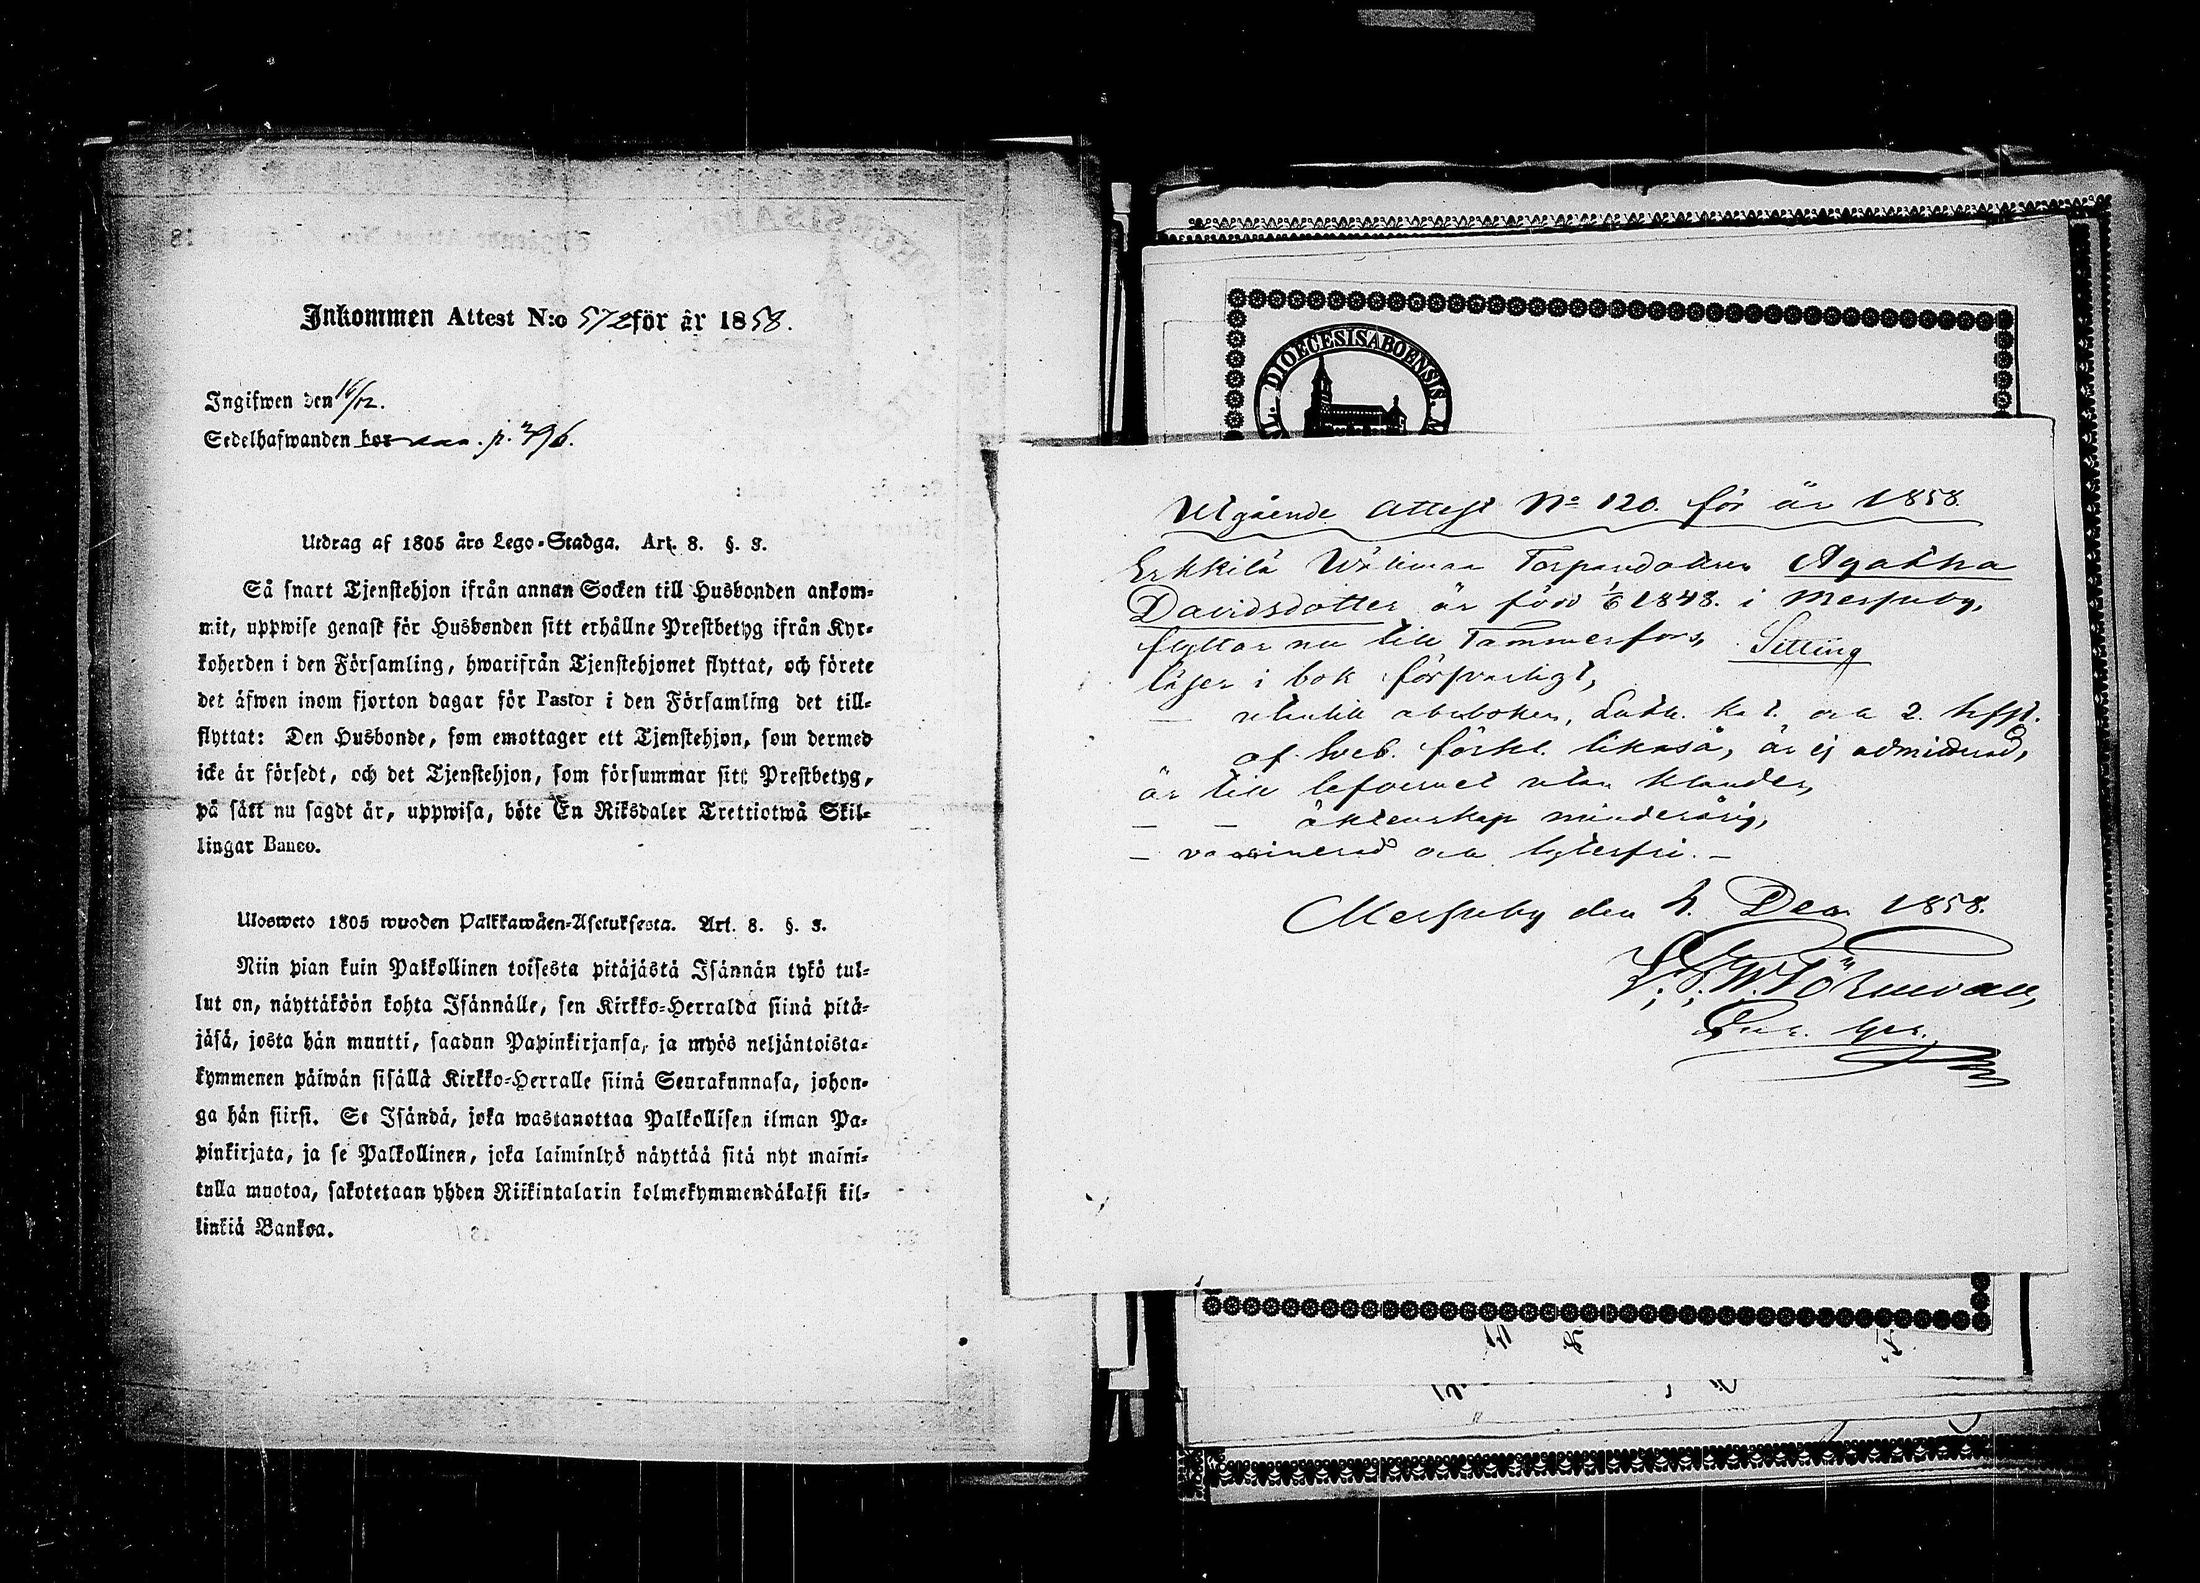 Inkommen Attest N:o 572 för år 1858.
Ingifwen den 16/12.
Sedelhafwanden bor p. 396.
Utdrag af 1805 års Lego-Stadga. Art. 8. §. 3.
Så snart Tjenstehjon ifrån annan Socken till Husbonden ankom-
mit, uppwise genast för Husbonden sitt erhållne Prestbetyg ifrån Kyr-
koherden i den Församling, hwarifrån Tjenstehjonet flyttat, och förete
det äfwen inom fjorton dagar för Pastor i den Församling det till-
flyttat: Den Husbonde, som emottager ett Tjenstehjon, som dermed
icke är försedt, och det Tjenstehjon, som försummar sitt Prestbetyg,
på sätt nu sagdt är, uppwisa, böte En Riksdaler Trettiotwå Skil-
lingar Banco.
Ulosweto 1805 wuoden Palkkawäen-Asetuksesta. Art. 8. §. 3.
Niin pian kuin Palkollinen toisesta pitäjästä Isännän tykö tul-
lut on, näyttäköön kohta Isännälle, sen Kirkko-Herralda siinä pitä-
jäsä, josta hän muutti, saadun Papinkirjansa, ja myös neljäntoista-
kymmenen päiwän sisällä Kirkko-Herralle siinä Seurakunnasa, johon-
ga hän siirsi. Se Isändä, joka wastanottaa Palkollisen ilman Pa-
pinkirjata, ja se Palkollinen, joka laiminlyö näyttää sitä nyt maini-
tulla muotoa, sakotetaan yhden Riikintalarin kolmekymmendäkaksi kil-
linkiä Bankoa.
DIOECESIS ABOENSIS.
Utgående Attest No 120. för år 1858.
Erkkilä Wälimaa Torpardottren Agatha
Davidsdotter är född 1/6 1848. i Messuby,
flyttar nu till Tammerfors, Sitting
läser i bok försvarligt,
— utantill abcboken, Luth. Kat. och 2. hffst.
af Sveb. förkl. likaså, är ej admitterad,
är till lefvernet utan klander,
— — äktenskap minderårig,
— vaccinerad och lytesfri. —
Messuby den 4. Dec. 1858.